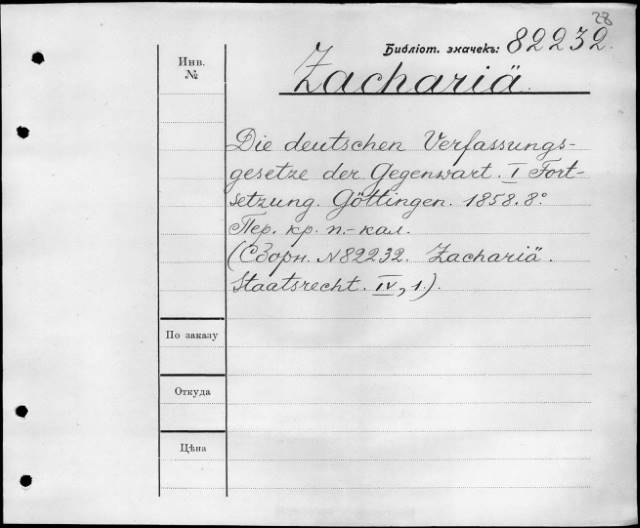 28
Библіот. значекъ: 82232.
Инв.
№
Zachariä.
Die deutschen Verfassungs-
gesetze der Gegenwart. I Fort-
setzung. Göttingen. 1858. 8°.
Пер. кр. п.-кал.
(Сборн. N82232. Zachariä.
Staatsrecht. IV, 1.).
По заказу
Откуда
Цѣна